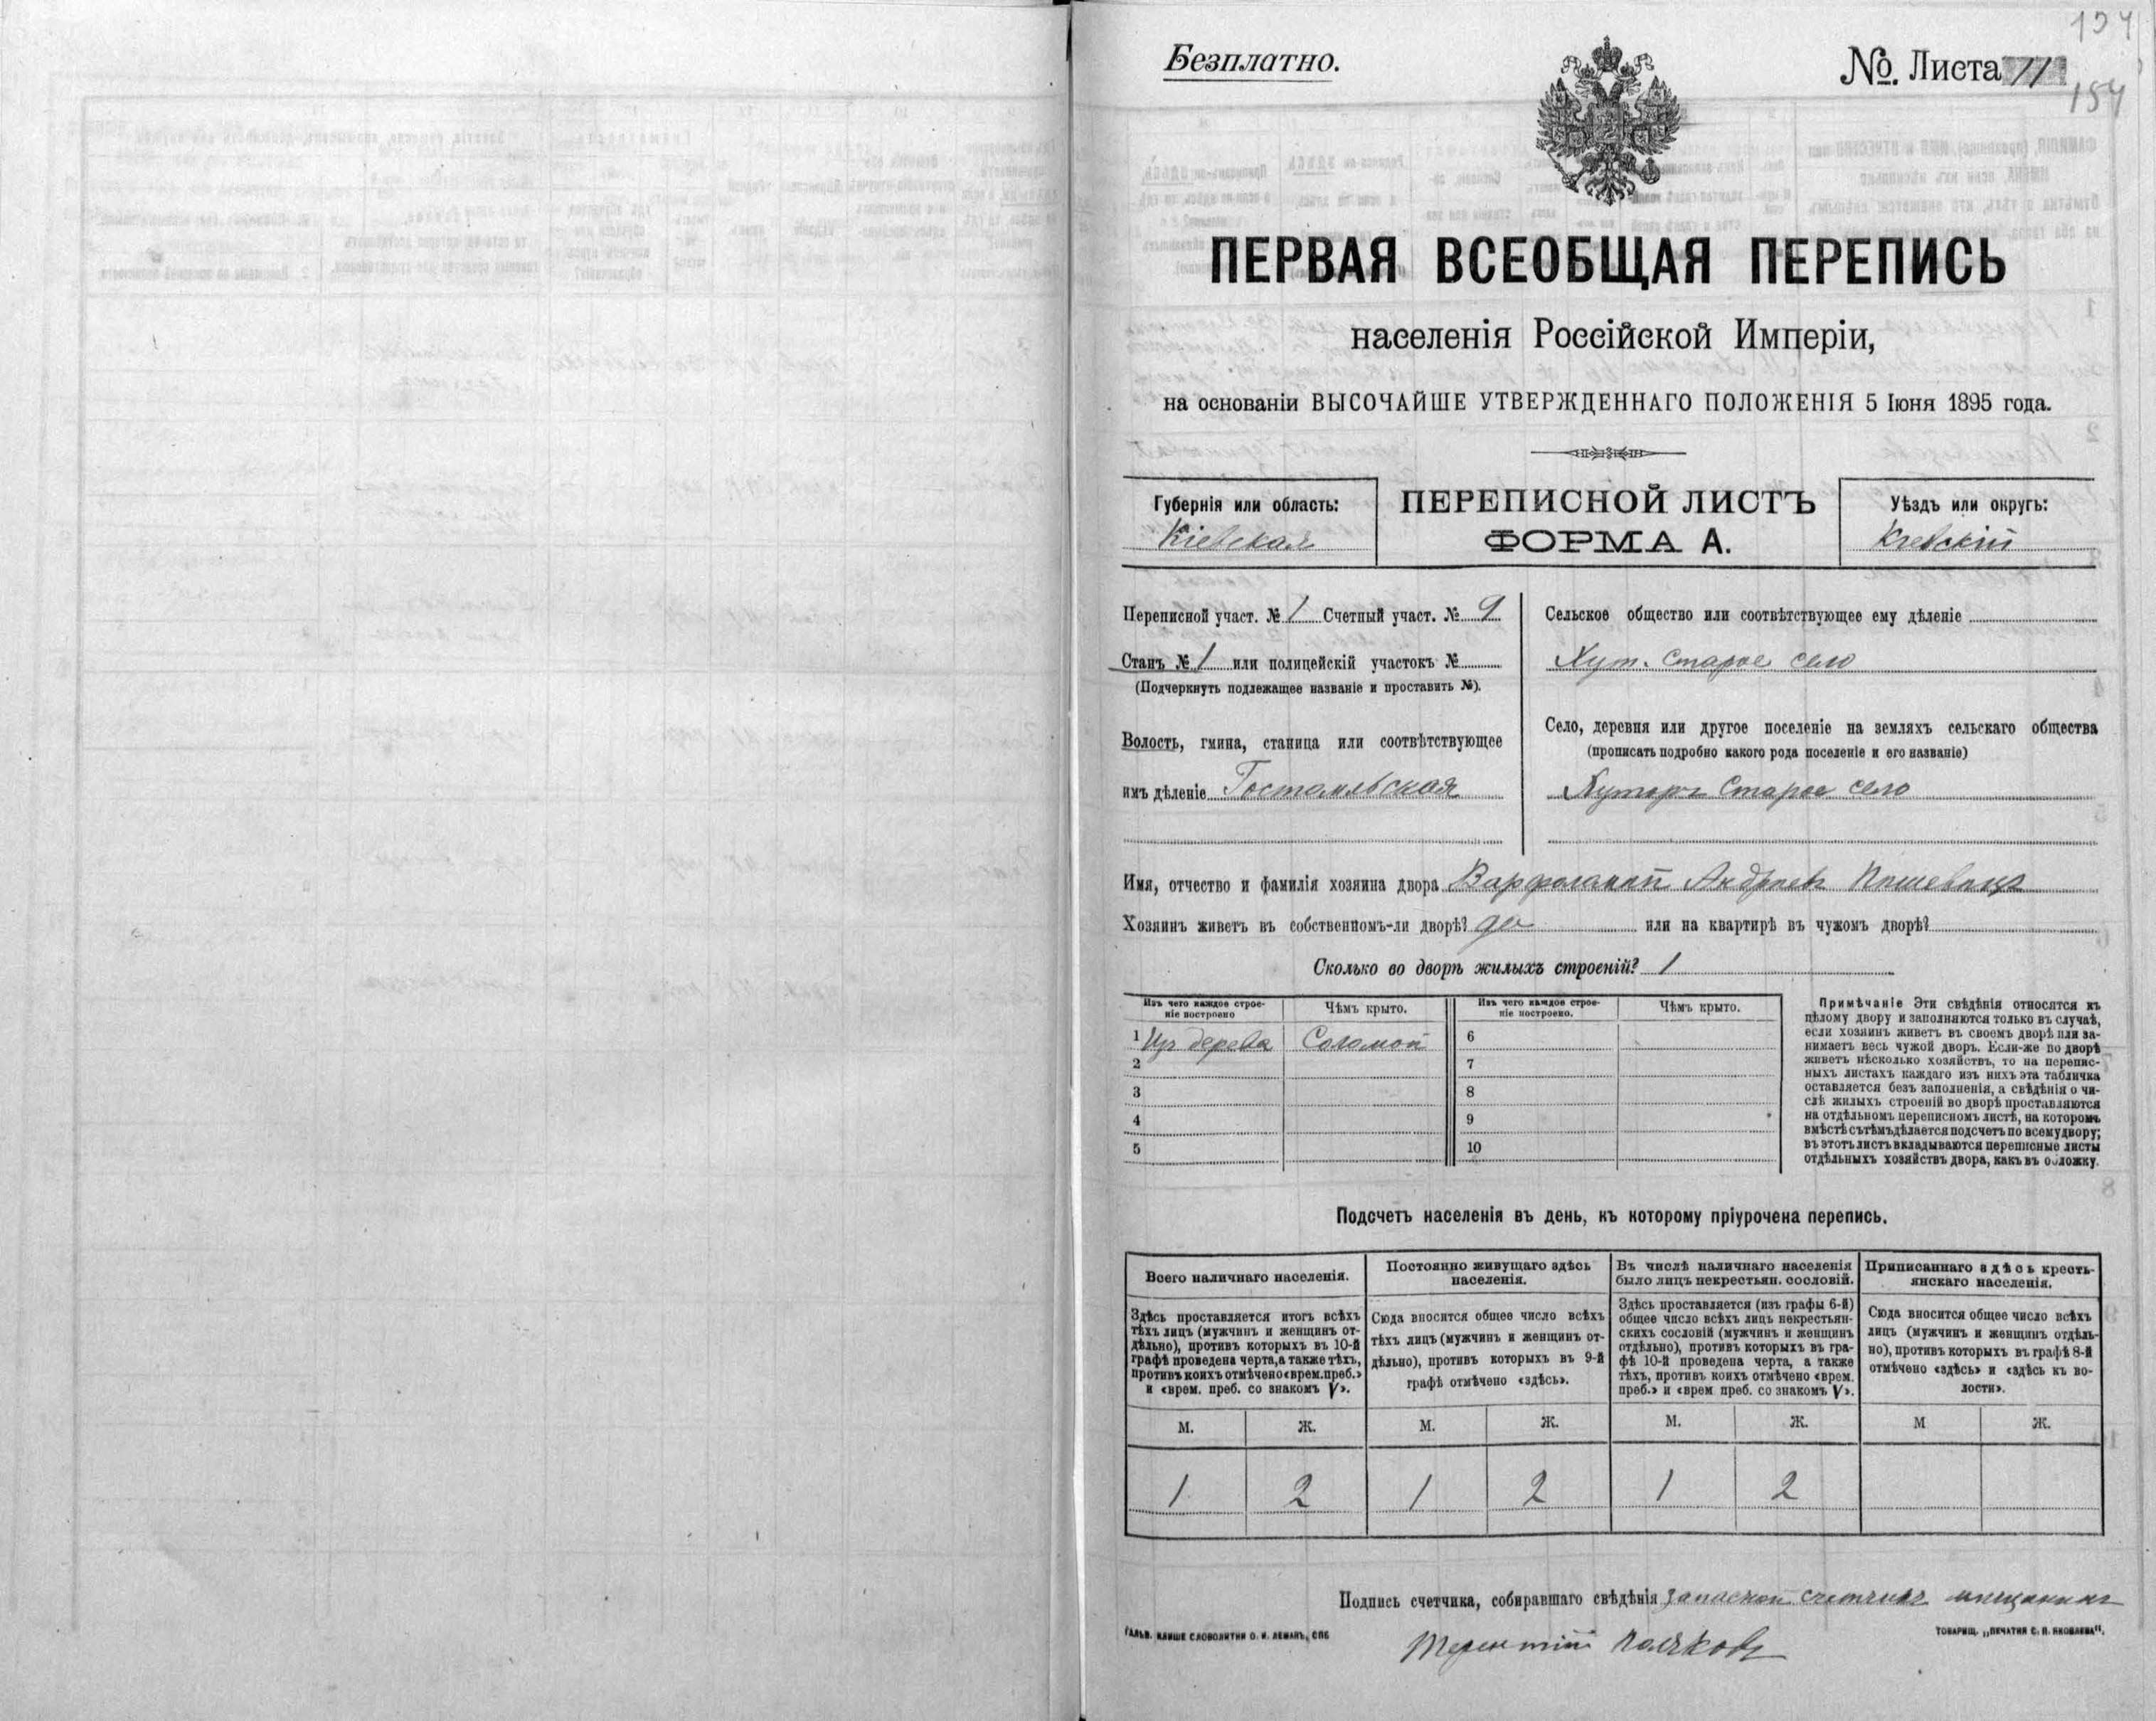 154
Безплатно.
№. Листа 11
154
ПЕРВАЯ ВСЕОБЩАЯ ПЕРЕПИСЬ
населенія Россійской Имперіи,
на основаніи ВЫСОЧАЙШЕ УТВЕРЖДЕННАГО ПОЛОЖЕНІЯ 5 Іюня 1895 года.
Губернія или область:
Кіевская
ПЕРЕПИСНОЙ ЛИСТЪ
ФОРМА А.
Уѣздъ или округъ:
Кіевскій
Переписной участ. № 1 Счетный участ. № 9
Станъ № 1 или полицейскій участокъ №
(Подчеркнуть подлежащее названіе и проставить №).
Волость, гмина, станица или соотвѣтствующее
имъ дѣленіе Гостомльская
Сельское общество или соотвѣтствующее ему дѣленіе
Хут. Старое село
Село, деревня или другое поселеніе на земляхъ сельскаго общества
(прописать подробно какого рода поселеніе и его названіе)
Хуторъ Старое село
Имя, отчество и фамилія хозяина двора Варфоломей Андреевъ
Хозяинъ живетъ въ собственномъ-ли дворѣ? да или на квартирѣ въ чужомъ дворѣ?
Сколько во дворѣ жилыхъ строеній? 1
Изъ чего каждое строе-
ніе построено
Чѣмъ крыто.
Изъ чего каждое строе-
ніе построено.
Чѣмъ крыто.
1 Изъ дерева Соломой 6
2 7
3 8
4 9
5 10
Примѣчаніе Эти свѣдѣнія относятся къ
цѣлому двору и заполняются только въ случаѣ,
если хозяинъ живетъ въ своемъ дворѣ или за-
нимаетъ весь чужой дворъ. Если-же во дворѣ
живетъ нѣсколько хозяйствъ, то на перепис-
ныхъ листахъ каждаго изъ нихъ эта табличка
оставляется безъ заполненія, а свѣдѣнія о чи-
слѣ жилыхъ строеній во дворѣ проставляются
на отдѣльномъ переписномъ листѣ, на которомъ
вмѣстѣ съ тѣмъ дѣлается подсчетъ по всему двору;
въ этотъ листъ вкладываются переписные листы
отдѣльныхъ хозяйствъ двора, какъ въ обложку.
Подсчетъ населенія въ день, къ которому пріурочена перепись.
Всего наличнаго населенія.
Здѣсь проставляется итогъ всѣхъ
тѣхъ лицъ (мужчинъ и женщинъ от-
дѣльно), противъ которыхъ въ 10-й
графѣ проведена черта, а также тѣхъ,
противъ коихъ отмѣчено «врем. преб.»
и «врем. преб. со знакомъ V».
М. Ж.
1 2
Постоянно живущаго здѣсь
населенія.
Сюда вносится общее число всѣхъ
тѣхъ лицъ (мужчинъ и женщинъ от-
дѣльно), противъ которыхъ въ 9-й
графѣ отмѣчено «здѣсь».
М. Ж.
1 2
Въ числѣ наличнаго населенія
было лицъ некрестьян. сословій.
Здѣсь проставляется (изъ графы 6-й)
общее число всѣхъ лицъ некрестьян-
скихъ сословій (мужчинъ и женщинъ
отдѣльно), противъ которыхъ въ гра-
фѣ 10-й проведена черта, а также
тѣхъ, противъ коихъ отмѣчено «врем.
преб.» и «врем. преб. со знакомъ V».
М. Ж.
1 2
Приписаннаго здѣсь кресть-
янскаго населенія.
Сюда вносится общее число всѣхъ
лицъ (мужчинъ и женщинъ отдѣль-
но), противъ которыхъ въ графѣ 8-й
отмѣчено «здѣсь» и «здѣсь къ во-
лости».
М Ж.
Подпись счетчика, собиравшаго свѣдѣнія запасной счетчикъ мещанинъ
Терентій Поляковъ
ГАЛЬВ. КЛИШЕ СЛОВОЛИТНИ О. И. ЛЕМАНЪ, СПБ
ТОВАРИЩ. „ПЕЧАТНЯ С. П. ЯКОВЛЕВА".